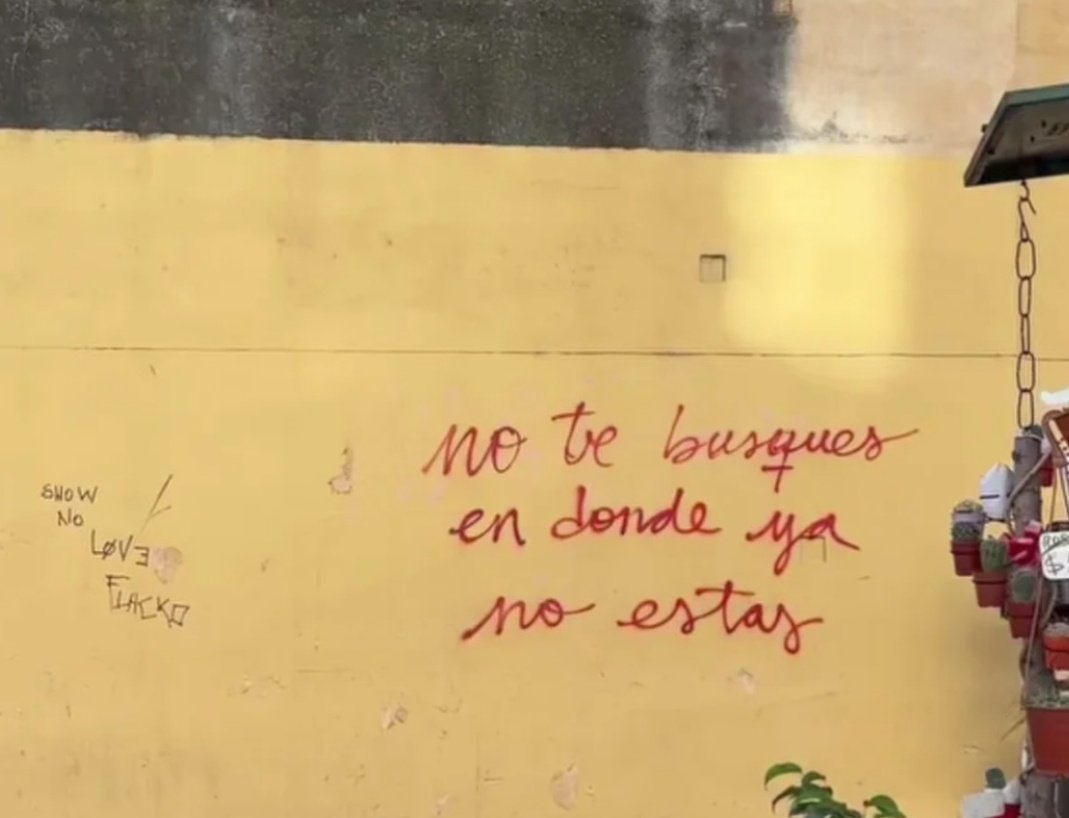 no te busques
en donde ya
no estas
SHOW
NO
LØVE
FLACKO